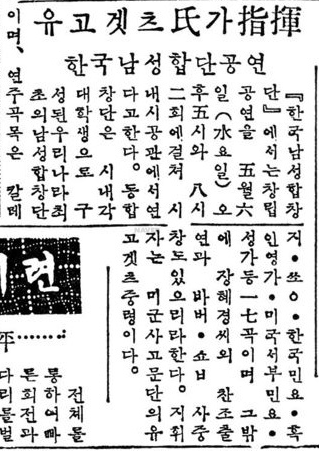 유고겟츠氏가指揮
한국남성합단공연
『한국남성합창
단』에서는창립
공연을 五월六
일(水요일) 오
후五시와 八시
二회에걸쳐 시
내시공관에서연
다고한다。동합
창단은 시내각
대학생으로 구
성된우리나라최
초의남성합창단
이며、연주곡목은 칼테
지・쓰ㅇ・한국민요・흑
인영가・미국서부민요・
성가등一七곡이며 그밖
에 장혜경씨의 찬조출
연과 바버・쇼ㅂ 사중
창도있으리라한다。지휘
자는 미군사고문단의유
고겟츠중령이다。
견
전체를
통하여빠
튼회전과
다리를벌